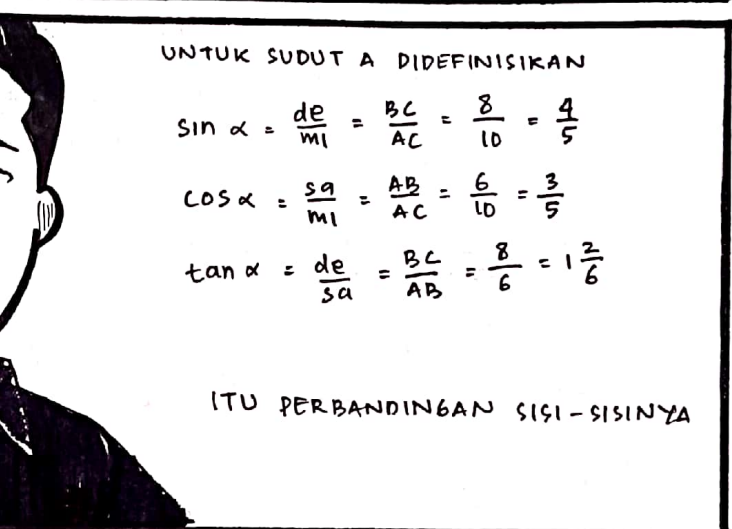 UNTUK SUDUT A DIDEFINISIKAN
sin α = de/mi = BC/AC = 8/10 = 4/5
cos α = sa/mi = AB/AC = 6/10 = 3/5
tan α = de/sa = BC/AB = 8/6 = 1 2/6
ITU PERBANDINGAN SISI-SISINYA